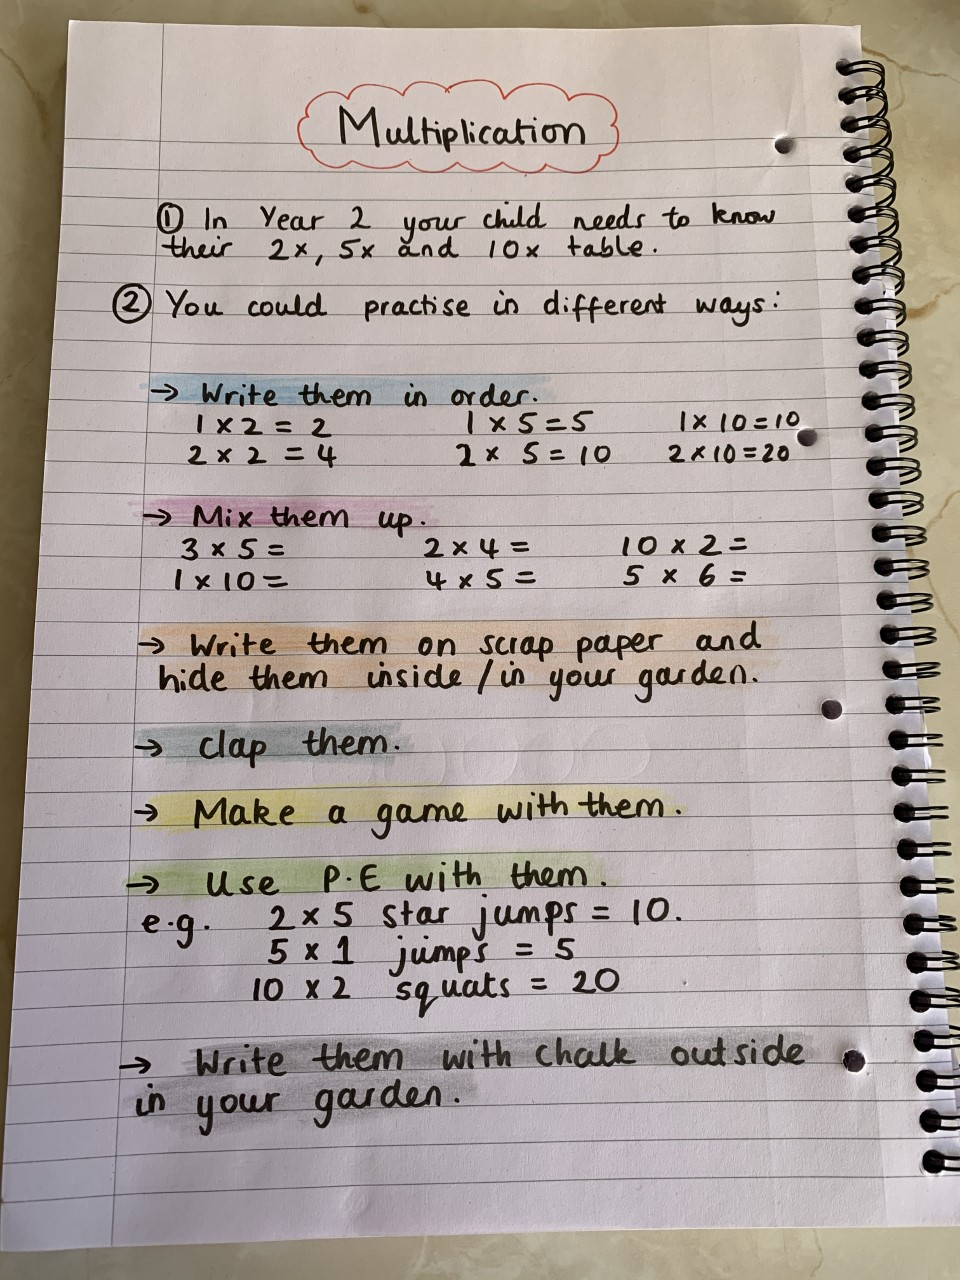 Multiplication
① In Year 2 your child needs to know
their 2x, 5x and 10x table.
② You could practise in different ways:
→ Write them in order.
1 x 2 = 2 1 x 5 = 5 1 x 10 = 10
2 x 2 = 4 2 x 5 = 10 2 x 10 = 20
→ Mix them up.
3 x 5 = 2 x 4 = 10 x 2 =
1 x 10 = 4 x 5 = 5 x 6 =
→ Write them on scrap paper and
hide them inside / in your garden.
→ clap them.
→ Make a game with them.
→ Use P.E with them.
e.g. 2 x 5 star jumps = 10.
5 x 1 jumps = 5
10 x 2 squats = 20
→ Write them with chalk outside
in your garden.